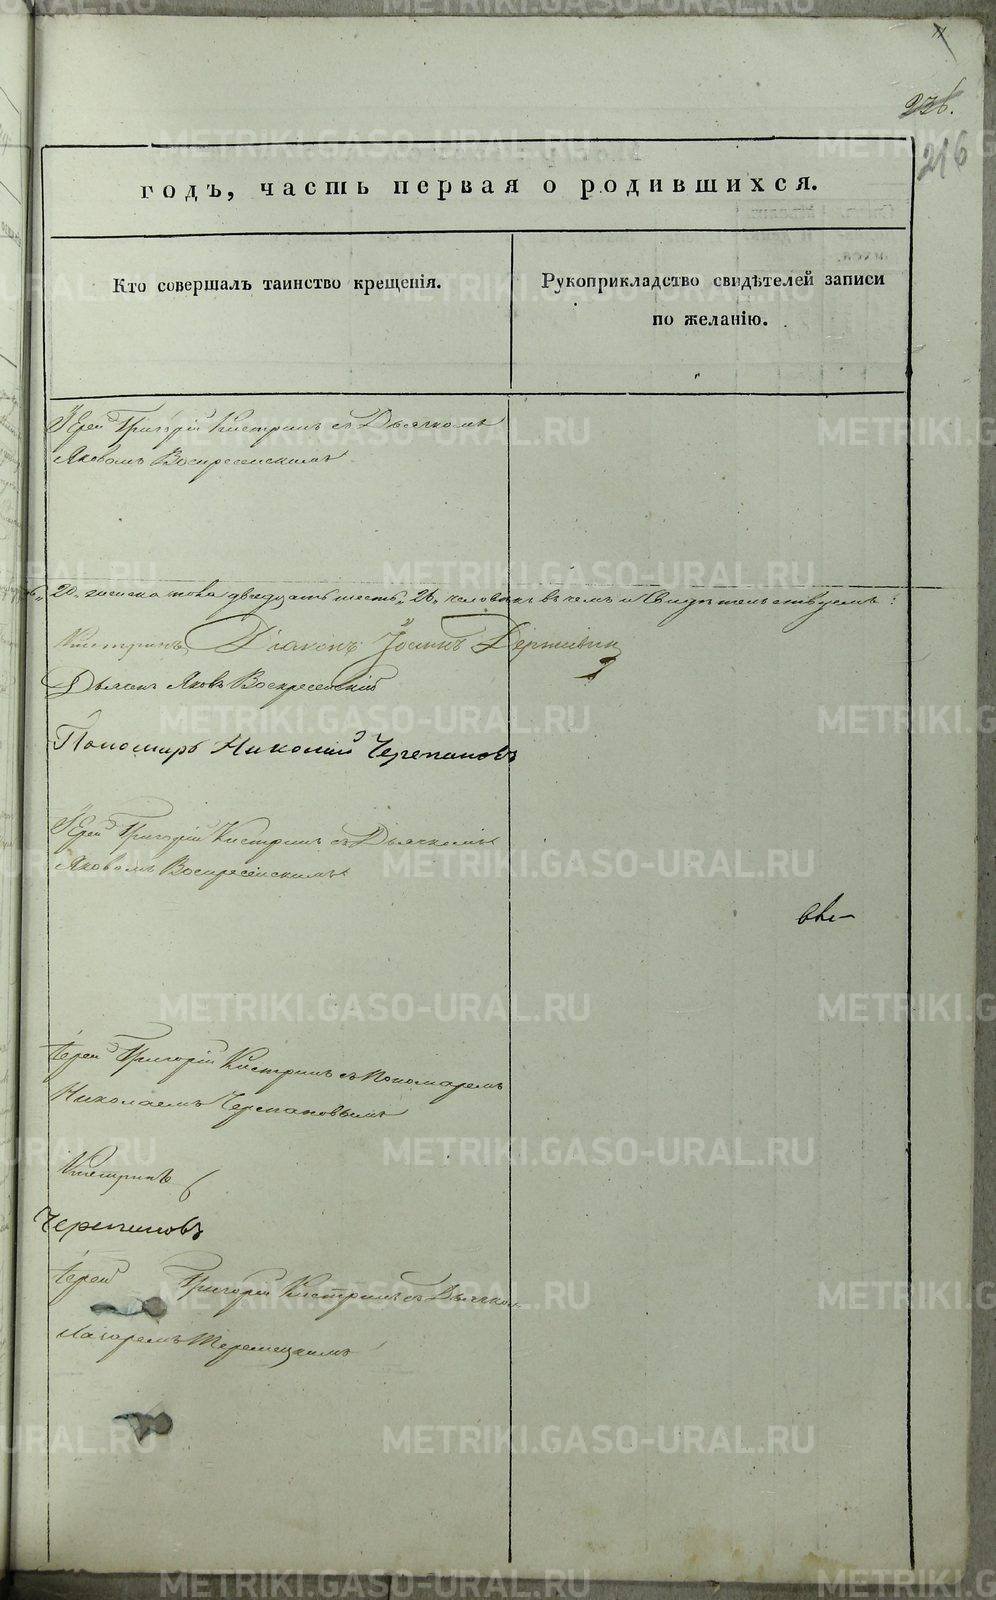 11
236.
216
годъ, часть первая о родившихся.
Кто совершалъ таинство крещенія.
Рукоприкладство свидѣтелей записи
по желанію.
Іерей Григорій Кистринъ съ Дьячкомъ
Яковомъ Воскресенскимъ
20. женска пола двадцать шесть 26. человѣкъ въ чемъ и Свидѣтельствуемъ:
Кистринъ Діаконъ Іоаннъ Державин
Дьячекъ Яковъ Воскресенскій
Пономарь Николай Черепановъ
Іерей Григорій Кистринъ съ Дьячкомъ
Яковомъ Воскресенскимъ
Іерей Григорій Кистринъ съ Пономаремъ
Николаемъ Черепановымъ
Кистринъ
Черепановъ
Іерей Григорій Кистринъ съ Дьячком
Лазаремъ
METRIKI.GASO-URAL.RU